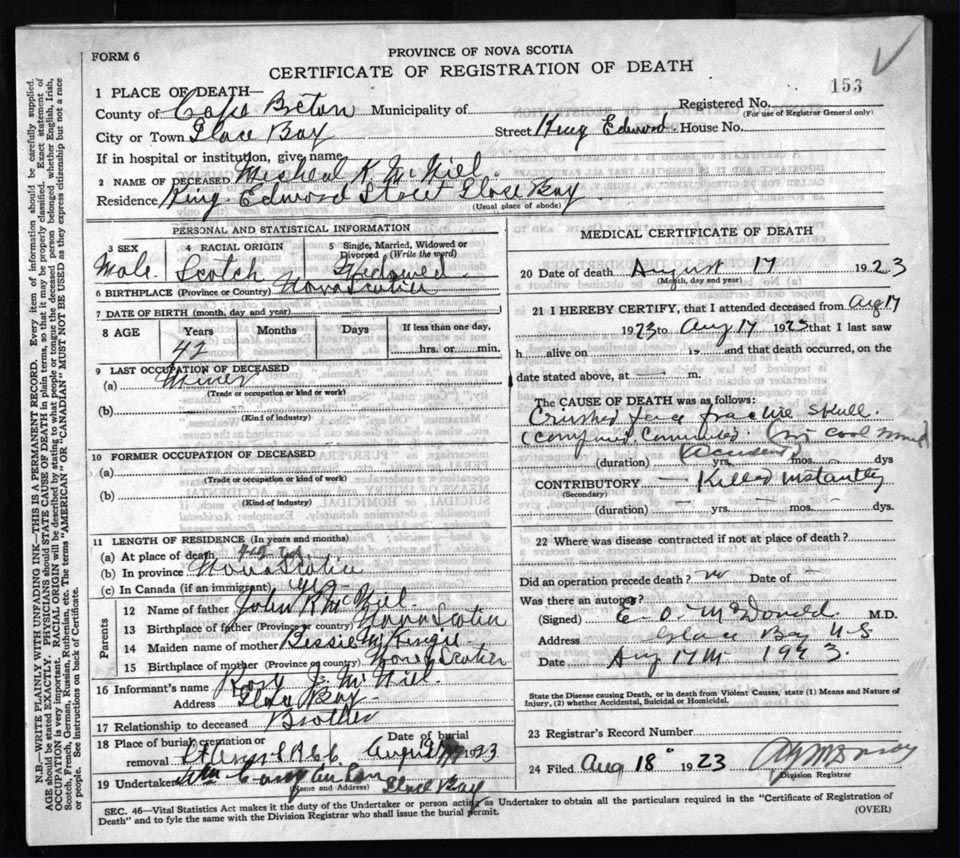 FORM 6
PROVINCE OF NOVA SCOTIA
CERTIFICATE OF REGISTRATION OF DEATH
153
1 PLACE OF DEATH—
County of Cape Breton Municipality of
Registered No.
(For use of Registrar General only)
City or Town Glace Bay Street King Edward House No.
If in hospital or institution, give name
2 NAME OF DECEASED Micheal K McNiel.
Residence King Edward Street Glace Bay
(Usual place of abode)
PERSONAL AND STATISTICAL INFORMATION
3 SEX 4 RACIAL ORIGIN 5 Single, Married, Widowed or Divorced (Write the word)
Male. Scotch Widowed
6 BIRTHPLACE (Province or Country) Nova Scotia
7 DATE OF BIRTH (month, day and year)
8 AGE Years Months Days If less than one day.
42 hrs. or min.
9 LAST OCCUPATION OF DECEASED
(a) Miner
(Trade or occupation or kind or work)
(b)
(Kind of industry)
10 FORMER OCCUPATION OF DECEASED
(a)
(Trade or occupation or kind of work)
(b)
(Kind of industry)
11 LENGTH OF RESIDENCE (In years and months)
(a) At place of death 42 yrs
(b) In province Nova Scotia
(c) In Canada (if an immigrant) yrs
Parents
12 Name of father John R McNiel.
13 Birthplace of father (Province or country) Nova Scotia
14 Maiden name of mother Bessie McKenzie
15 Birthplace of mother (Province or country) Nova Scotia
16 Informant's name Rory J. McNiel.
Address Glace Bay
17 Relationship to deceased Brother
18 Place of burial, cremation or removal Date of burial
August 1923
19 Undertaker Glace Bay
(Name and Address)
MEDICAL CERTIFICATE OF DEATH
20 Date of death August 17 1923
(Month, day and year)
21 I HEREBY CERTIFY, that I attended deceased from Aug 17
1923 to Aug 17 1923 that I last saw
h alive on is and that death occurred, on the
date stated above, at — m.
The CAUSE OF DEATH was as follows:
Crushed face fracture skull.
(compound comminuted. (in coal mine)
(Accident)
(duration) yrs. mos. dys
CONTRIBUTORY — Killed instantly
(Secondary)
(duration) — yrs. — mos. dys.
22 Where was disease contracted if not at place of death?
Did an operation precede death? no Date of —
Was there an autopsy?
(Signed) E. O. McDonald. M.D.
Address Glace Bay N S
Date Aug 17th 1923.
State the Disease causing Death, or in death from Violent Causes, state (1) Means and Nature of
Injury, (2) whether Accidental, Suicidal or Homicidal.
23 Registrar's Record Number
24 Filed Aug 18 1923
Division Registrar
SEC. 46—Vital Statistics Act makes it the duty of the Undertaker or person acting as Undertaker to obtain all the particulars required in the "Certificate of Registration of
Death" and to fyle the same with the Division Registrar who shall issue the burial permit.
(OVER)
N.B.—WRITE PLAINLY WITH UNFADING INK—THIS IS A PERMANENT RECORD. Every item of information should be carefully supplied.
AGE should be stated EXACTLY. PHYSICIANS should STATE CAUSE OF DEATH in plain terms, so that it may be properly classified. Exact statement of
OCCUPATION is very important. RACIAL ORIGIN will be described by stating to what people or tongue the deceased person belonged whether English, Irish,
Scotch, French, German, Russian, Ruthenian, etc. The terms "AMERICAN" or "CANADIAN" MUST NOT BE USED as they express citizenship but not a race
or people. See instructions on back of Certificate.